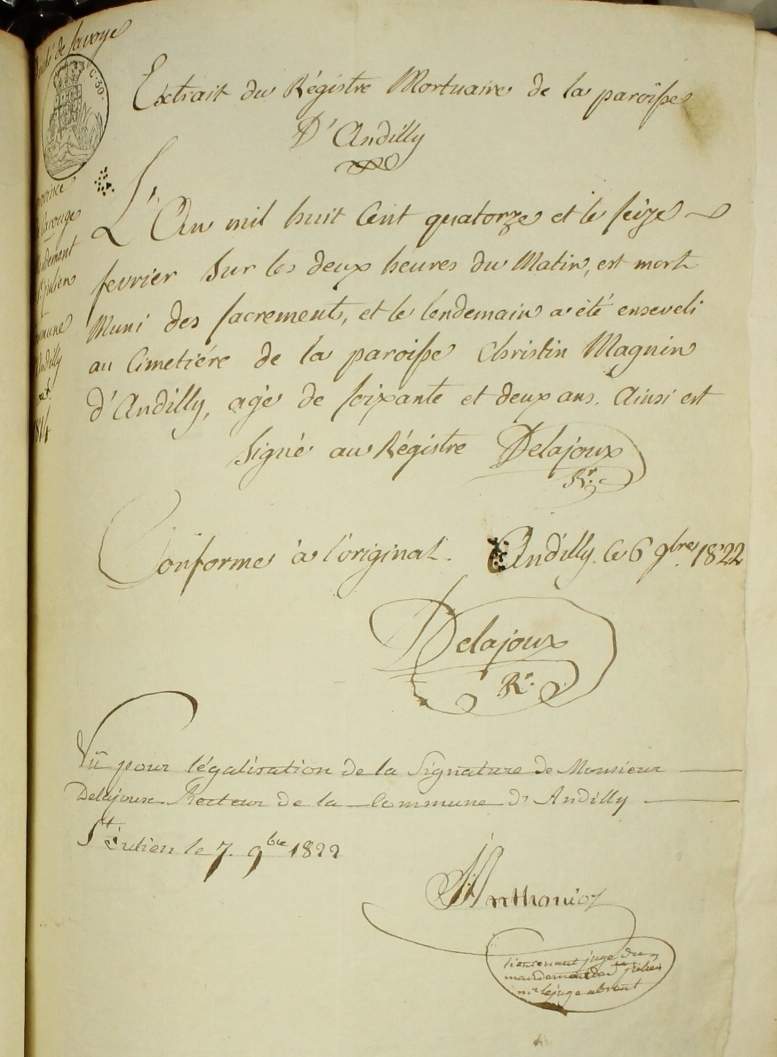 de Savoye
C. 50.
Extrait du Régistre Mortuaire de la paroisse
D'Andilly
L'An mil huit Cent quatorze et le seize
fevrier sur les deux heures du Matin, est mort
Muni des sacrements, et le lendemain a été enseveli
au Cimetiére de la paroisse Christin Magnin
d'Andilly, agé de soixante et deux ans. Ainsi est
Signé au Régistre Delajoux
Rr.
Conforme à l'original. Andilly. le 6 9bre 1822
Delajoux
Rr.
Vû pour légalisation de la Signature de Monsieur
Delajoux Recteur de la Commune d'Andilly
St Julien le 7. 9bre 1822
Anthonioz
lieutenant juge du
mandement de St julien
mr le juge absent